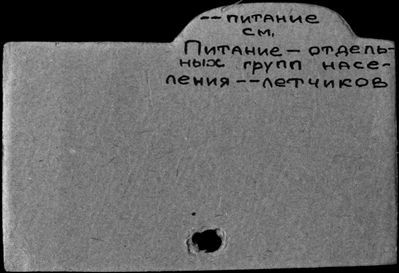 --питание
см.
Питание — отдель-
ных групп насе-
ления -- летчиков